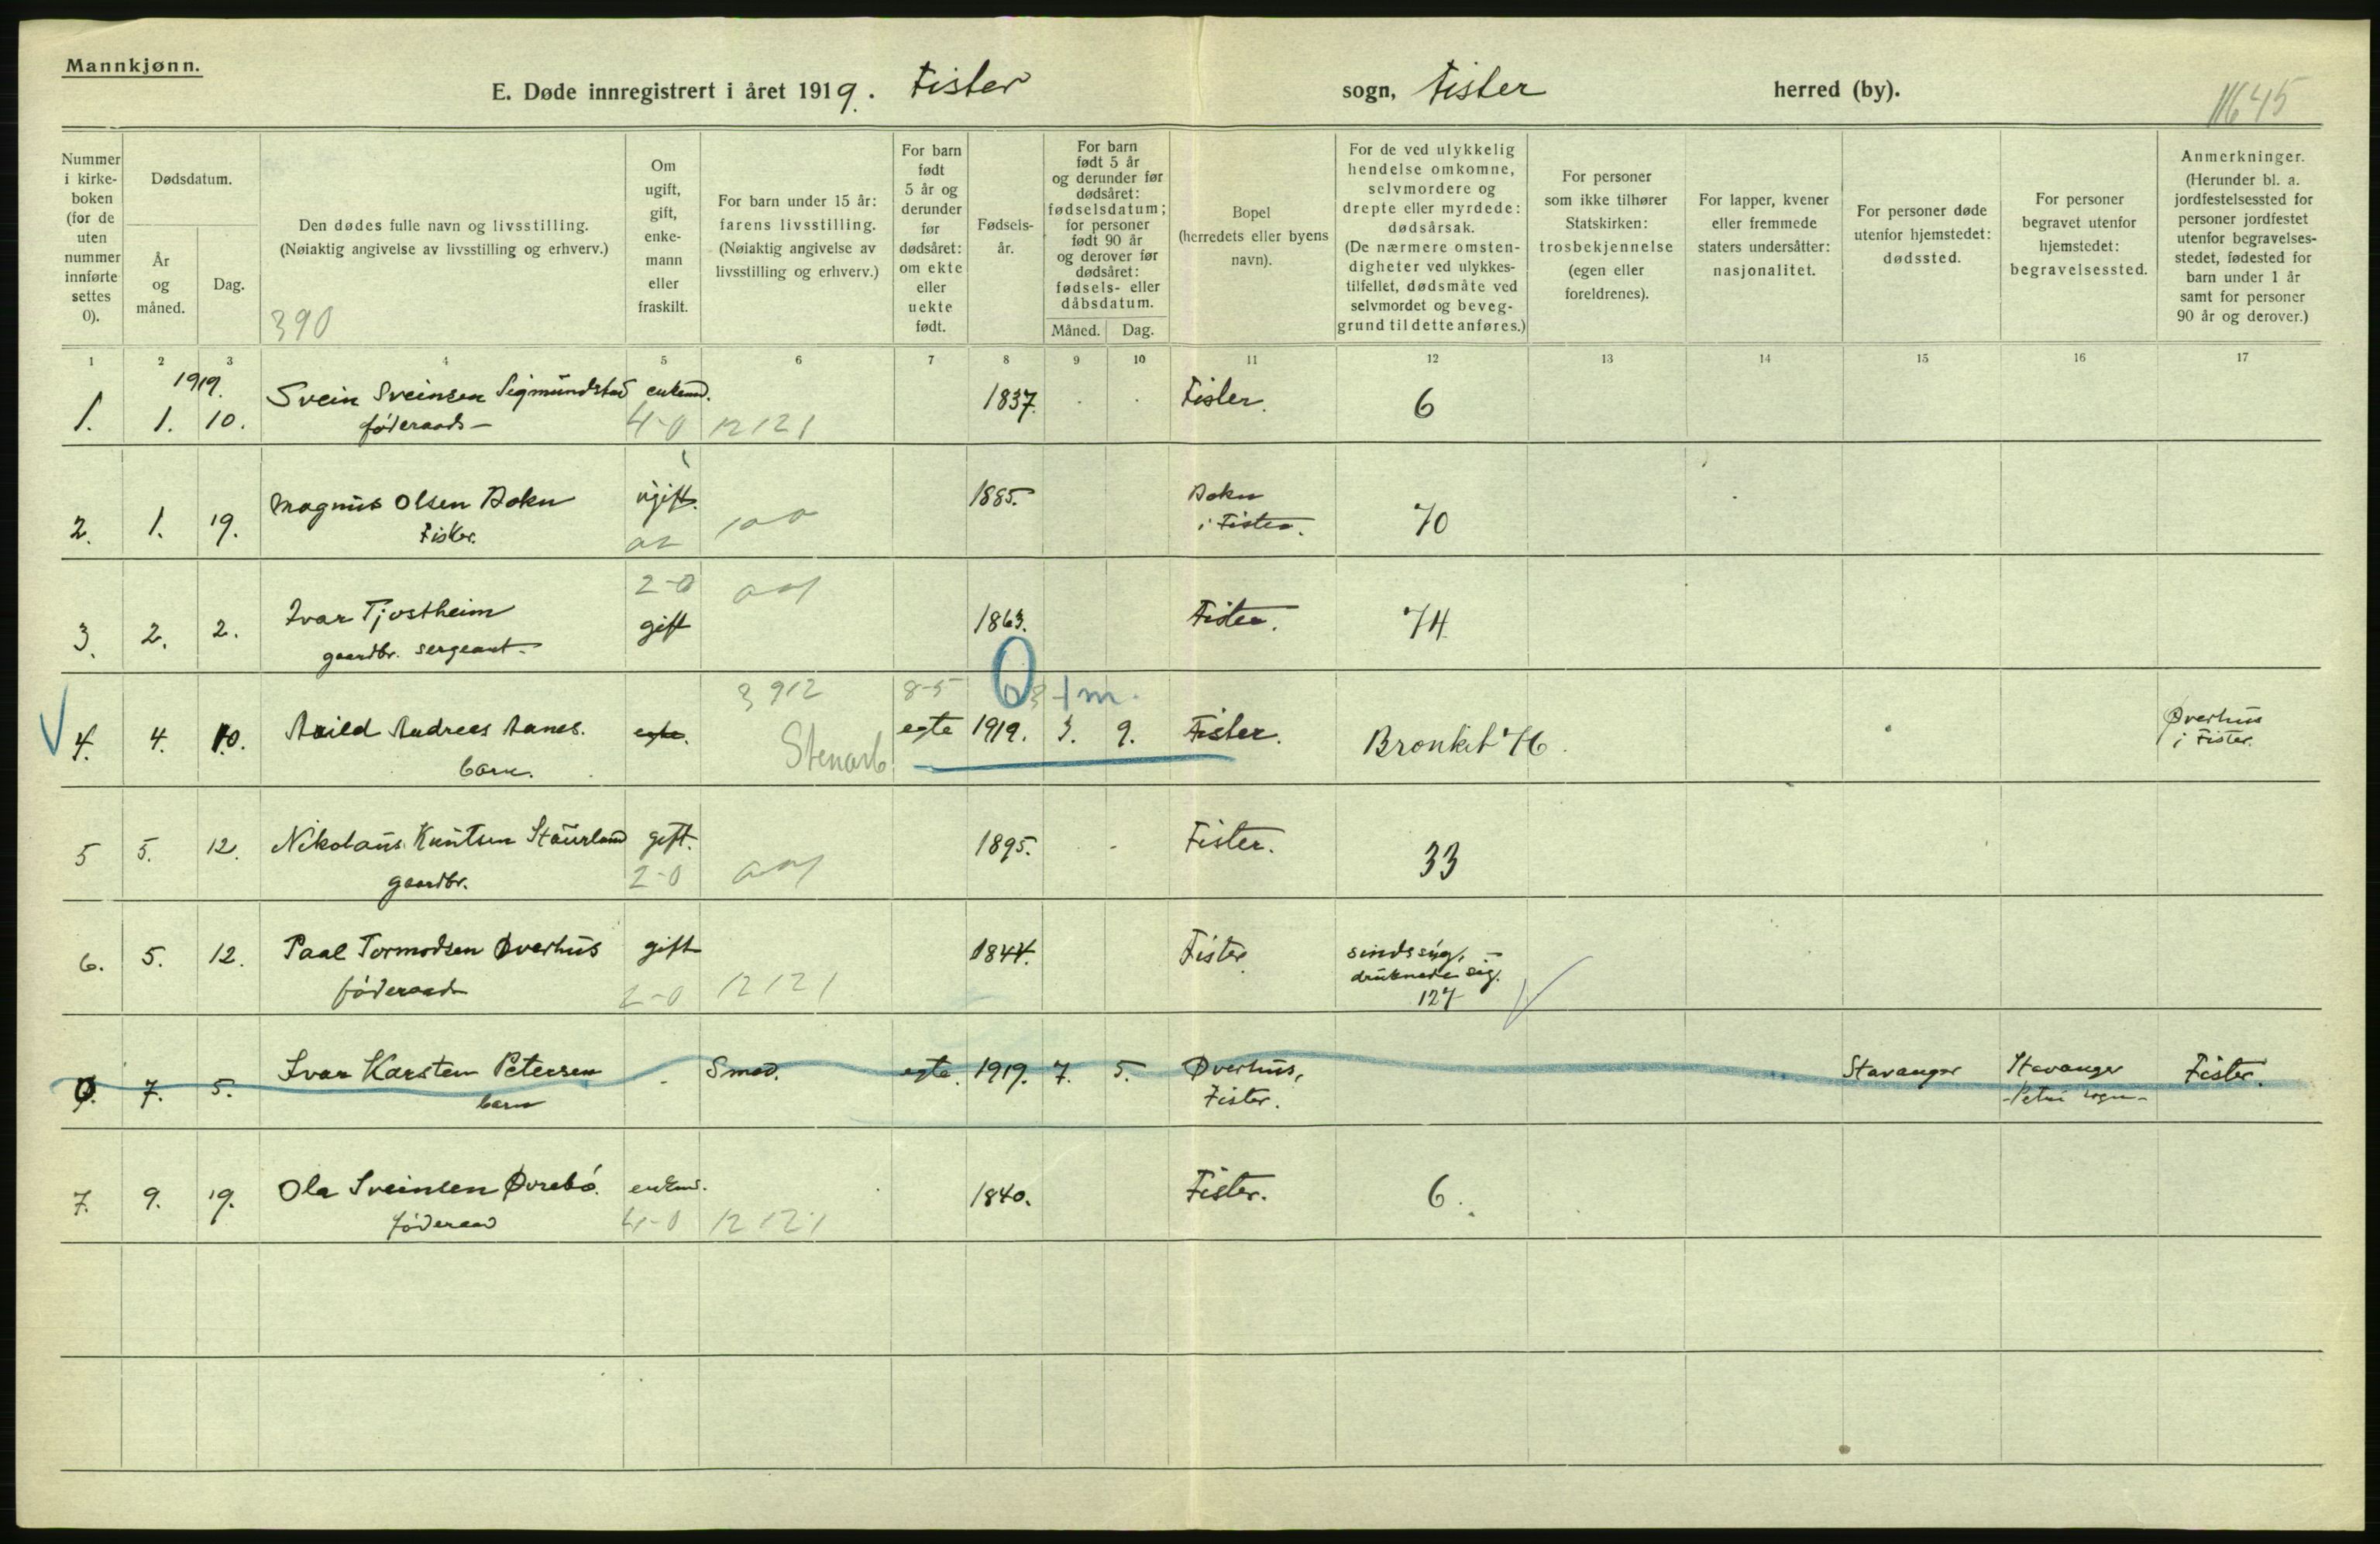 Mannkjønn.
E. Døde innregistrert i året 1919. Fister sogn, Fister herred (by).
11645
Nummer i kirkeboken (for de uten nummer innførte settes 0).
Dødsdatum.
År og måned.
Dag.
Den dødes fulle navn og livsstilling.
(Nøiaktig angivelse av livsstilling og erhverv.)
390
Om ugift, gift, enkemann eller fraskilt.
For barn under 15 år: farens livsstilling. (Nøiaktig angivelse av livsstilling og erhverv.)
For barn født 5 år og derunder før dødsåret: om ekte eller uekte født.
Fødselsår.
For barn født 5 år og derunder før dødsåret: fødselsdatum; for personer født 90 år og derover før dødsåret: fødsels- eller dåbsdatum.
Måned. Dag.
Bopel (herredets eller byens navn).
For de ved ulykkelig hendelse omkomne, selvmordere og drepte eller myrdede: dødsårsak. (De nærmere omstendigheter ved ulykkestilfellet, dødsmåte ved selvmordet og beveggrund til dette anføres.)
For personer som ikke tilhører Statskirken: trosbekjennelse (egen eller foreldrenes).
For lapper, kvener eller fremmede staters undersåtter: nasjonalitet.
For personer døde utenfor hjemstedet: dødssted.
For personer begravet utenfor hjemstedet: begravelsessted.
Anmerkninger. (Herunder bl. a. jordfestelsessted for personer jordfestet utenfor begravelsesstedet, fødested for barn under 1 år samt for personer 90 år og derover.)
1 2 3 4 5 6 7 8 9 10 11 12 13 14 15 16 17
1919.
1. 1. 10. Svein Sveinsen Sigmundstad enkem. 1837. Fister. 6
føderaads- 4-0 12121
2. 1. 19. Magnus Olsen Boku ugift. 1885. Boku i Fister. 70
Fisker. 100
2-0
3. 2. 2. Ivar Tjostheim gift 1863. Fister. 74
gaardbr. sergeant.
3 912 8-5 0 1m.
4. 4. 10. Arild Andreas Aanes. egte. Stenarb. egte 1919. 3. 9. Fister. Bronkit 76. Øverhus i Fister.
barn.
5 5. 12. Nikolaus Knutsen Staurland gift. 1895. Fister. 33
gaardbr. 2-0
6. 5. 12. Paal Tormodsen Øverhus gift 1844. Fister. sindssyg, - druknede sig. 127
føderaad 2-0 12121
0. 7. 5. Ivar Karsten Petersen - Smed. egte. 1919. 7. 5. Øverhus, Fister. Stavanger Stavanger -Petri sogn- Fister.
barn
7. 9. 19. Ola Sveinsen Øvrebø. enkem. 1840. Fister. 6.
føderaad 4-0 12121